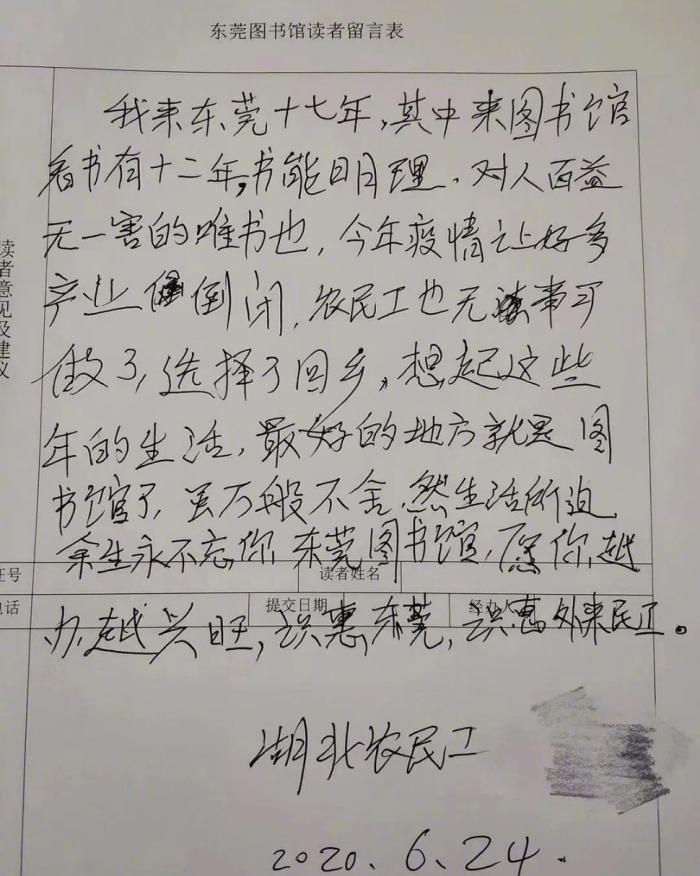 东莞图书馆读者留言表
我来东莞十七年,其中来图书馆
看书有十二年,书能明理、对人百益
无一害的唯书也,今年疫情让好多
产业倒闭,农民工也无事可
做了,选择了回乡。想起这些
年的生活,最好的地方就是图
书馆了,虽万般不舍,然生活所迫
余生永不忘你,东莞图书馆,愿你越
办越兴旺,识惠东莞,识惠外来民工。
读者意见及建议
证号
读者姓名
电话
提交日期
经办人
湖北农民工
2020.6.24.